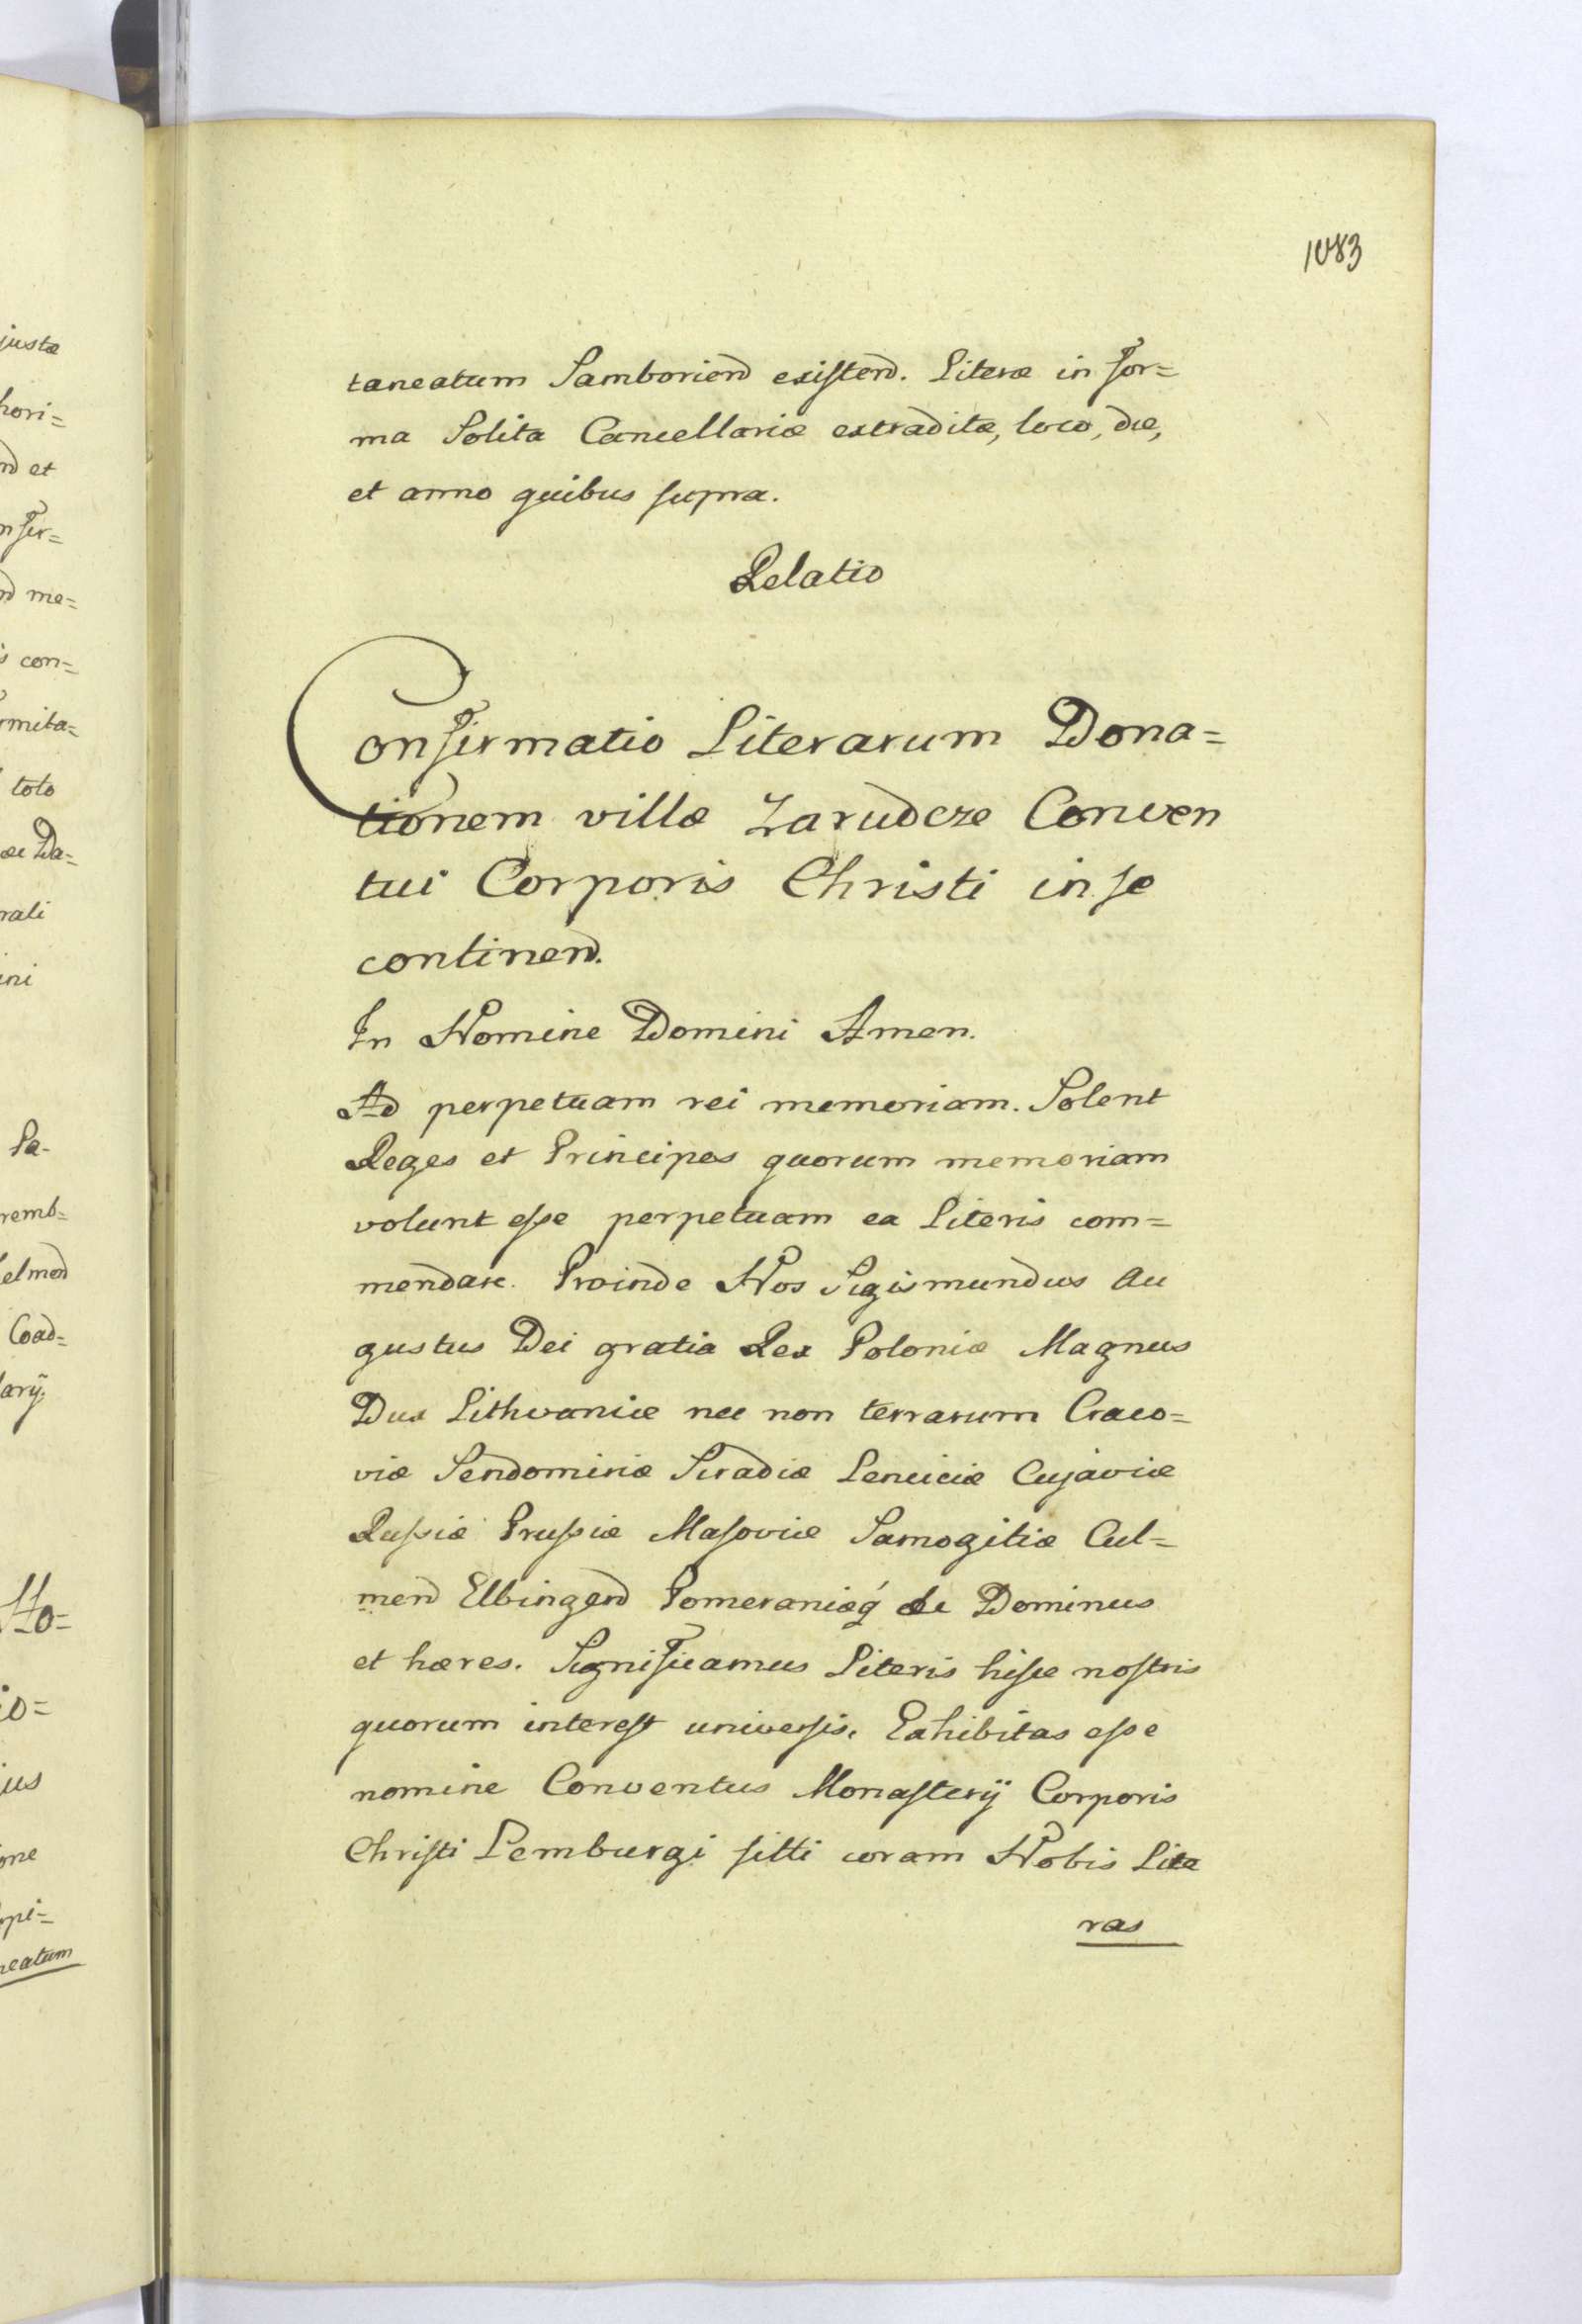 1083
taneatum Samboriend existend. Literæ in for=
ma Solita Cancellariæ extraditæ, loco, die,
et anno quibus supra.
Relatio
Confirmatio Literarum Dona=
tionem villæ Zarudcze Conven
tui Corporis Christi in se
continend.
In Nomine Domini Amen.
Ad perpetuam rei memoriam. Solent
Reges et Principes quorum memoriam
volunt esse perpetuam ea Literis com=
mendare. Proinde Nos Sigismundus Au
gustus Dei gratia Rex Poloniæ Magnus
Dux Lithvaniæ nec non terrarum Craco=
viæ Sendomiriæ Siradiæ Lenciciæ Cujaviæ
Russiæ Prussiæ Masoviæ Samogitiæ Cul=
mend Elbingend Pomeraniæq́ &c Dominus
et hæres. Significamus Literis hisce nostris
quorum interest universis. Exhibitas esse
nomine Conventus Monasterij Corporis
Christi Lemburgi sitti coram Nobis Lite
ras
justæ
hori=
nd et
nfir=
nd me=
s con=
rmita=
toto
æ Da=
rali
ini
Pa-
remb=
elmend
Coad=
larij.
No=
io=
ius
one
opi=
neatum